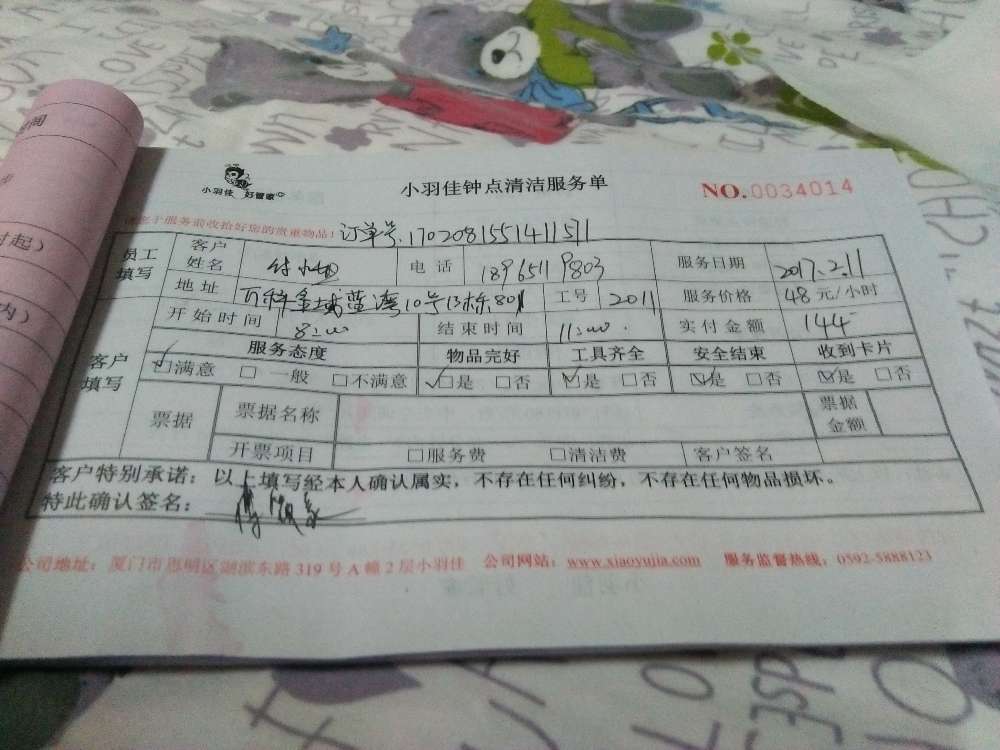 小羽佳 好管家
小羽佳钟点清洁服务单
NO.0034014
于服务前收拾好您的贵重物品！订单号.170208155141151
员工填写 客户姓名 付小姐 电话 18965119803 服务日期 2017.2.11
地址 万科金域蓝湾10号13栋801 工号 2011 服务价格 48元/小时
开始时间 8:00 结束时间 11:00. 实付金额 144
客户填写 服务态度 物品完好 工具齐全 安全结束 收到卡片
☑满意 □一般 □不满意 ☑是 □否 ☑是 □否 ☑是 □否 ☑是 □否
票据 票据名称 票据金额
开票项目 □服务费 □清洁费 客户签名
客户特别承诺：以上填写经本人确认属实，不存在任何纠纷，不存在任何物品损坏。
特此确认签名：
公司地址：厦门市思明区湖滨东路319号A幢2层小羽佳 公司网站：www.xiaoyujia.com 服务监督热线：0592-5888123